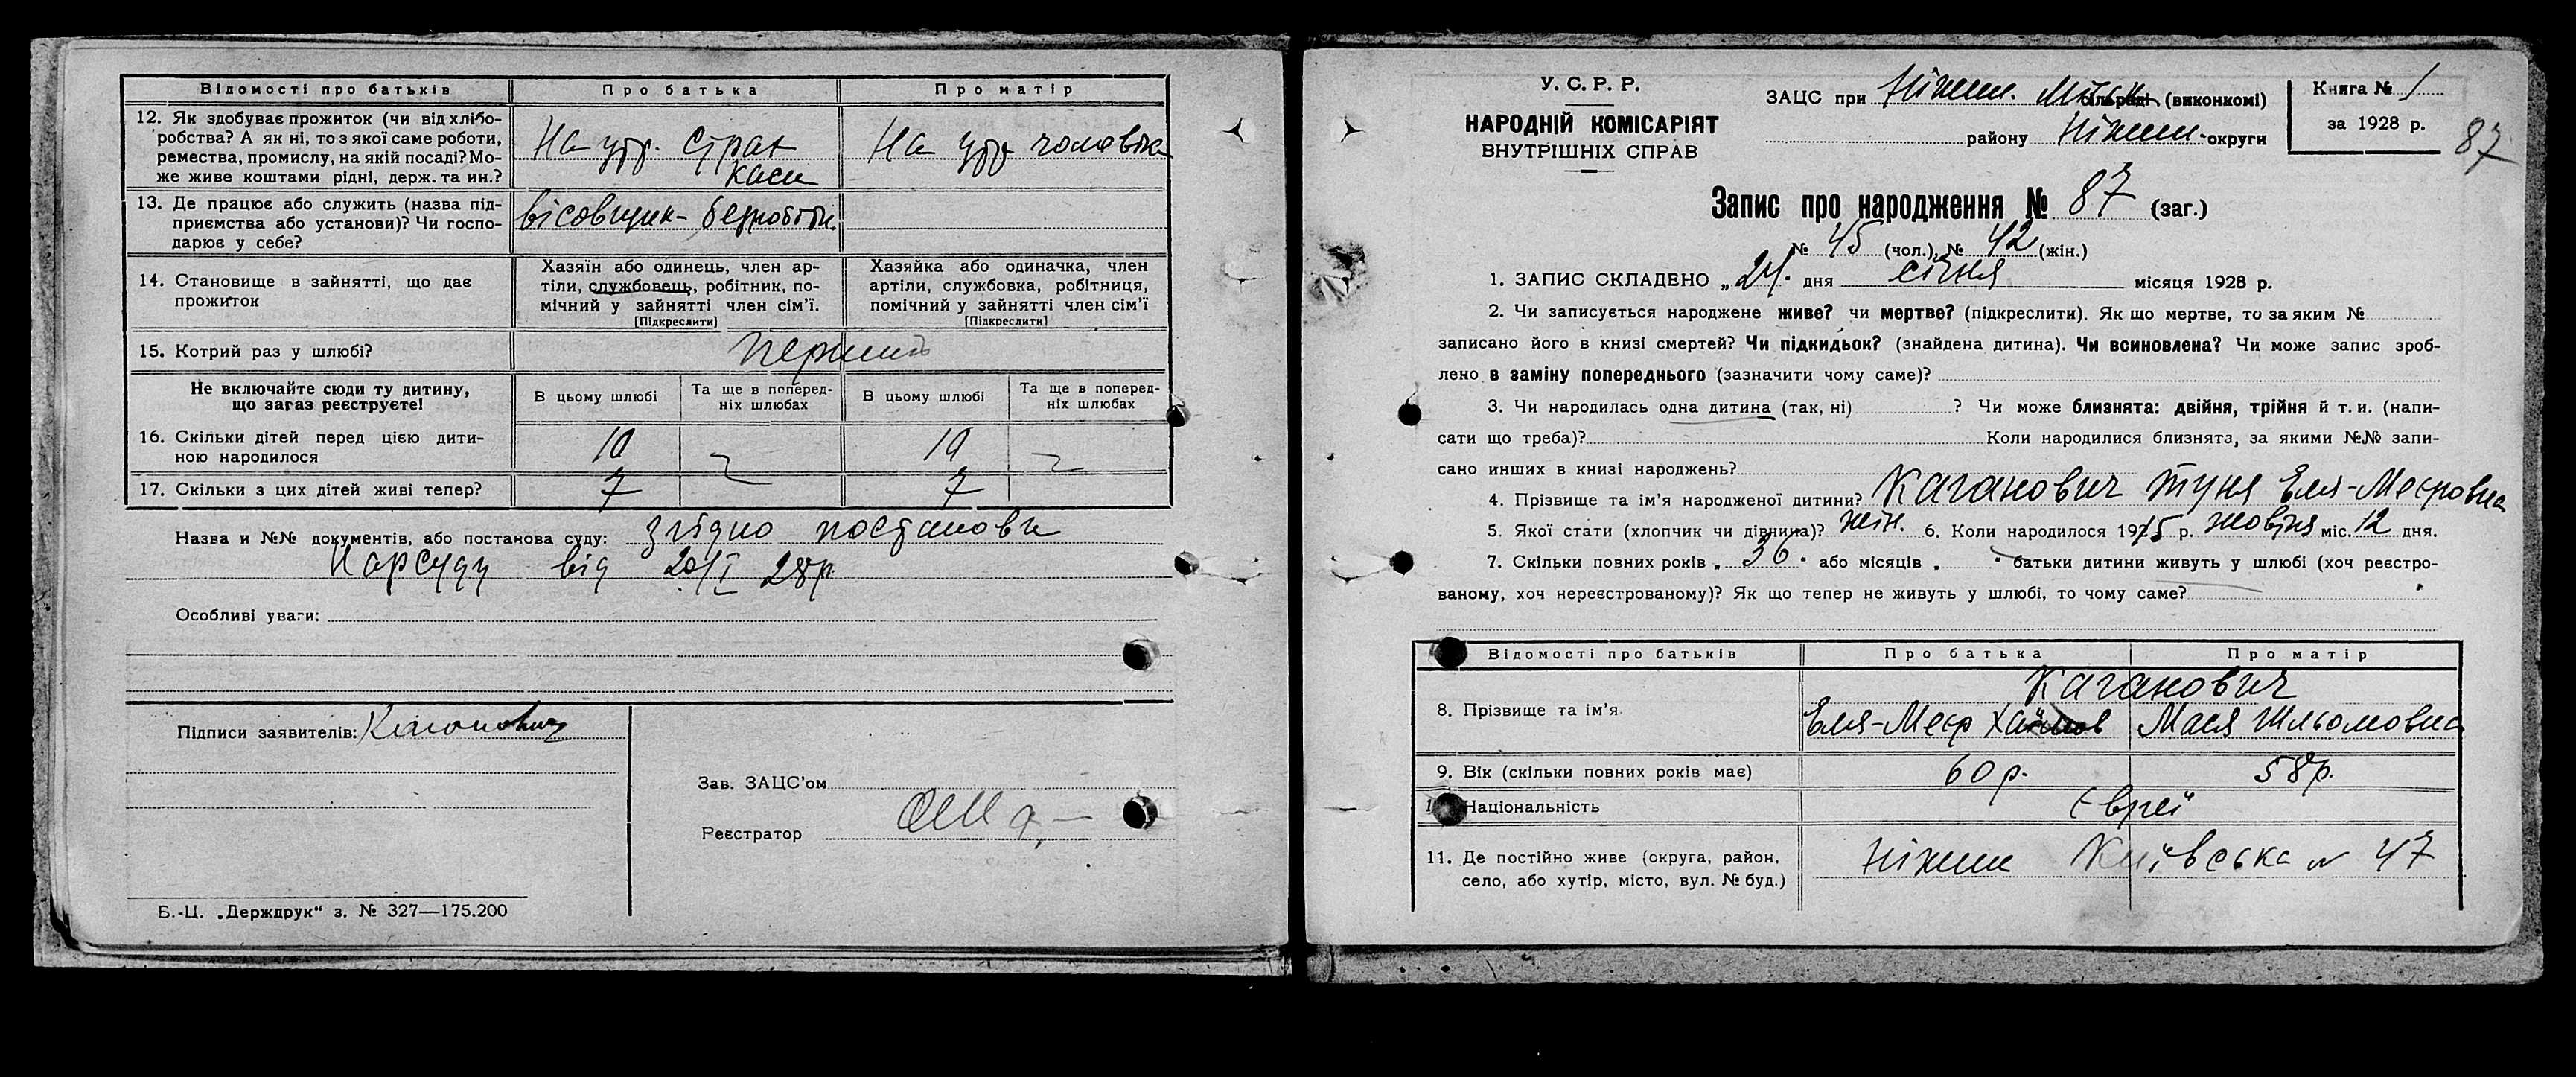 Відомості про батьків Про батька Про матір
12. Як здобуває прожиток (чи від хлібо-
робства? А як ні, то з якої саме роботи,
ремества, промислу, на якій посаді? Мо-
же живе коштами рідні, держ. та ин.?
На утр. Страх
каси
На утр чоловіка
13. Де працює або служить (назва під-
приємства або установи)? Чи госпо-
дарює у себе?
вісовщик - безробітн.
14. Становище в зайнятті, що дає
прожиток
Хазяїн або одинець, член ар-
тіли, службовець, робітник, по-
мічний у зайнятті член сім’ї.
[Підкреслити]
Хазяйка або одиначка, член
артіли, службовка, робітниця,
помічний у зайнятті член сім’ї
[Підкреслити]
15. Котрий раз у шлюбі? перший
Не включайте сюди ту дитину,
що зараз реєструєте!
В цьому шлюбі
Та ще в поперед-
ніх шлюбах
В цьому шлюбі
Та ще в поперед-
ніх шлюбах
16. Скільки дітей перед цією дити-
ною народилося
10 10
17. Скільки з цих дітей живі тепер? 7 7
Назва и №№ документів, або постанова суду: згідно постанови
Нарсуду від 20/I 28р
Особливі уваги:
Підписи заявителів: Каганович
Зав. ЗАЦС’ом
Реєстратор
Б.-Ц. „Держдрук“ з. № 327—175.200
У. С. Р. Р.
НАРОДНІЙ КОМІСАРІЯТ
ВНУТРІШНІХ СПРАВ
ЗАЦС при Ніжин. Міськ сільраді (виконкомі)
району Ніжин. округи
Книга № 1
за 1928 р.
87
Запис про народження № 87 (заг.)
№ 45 (чол.), № 42 (жін.)
1. ЗАПИС СКЛАДЕНО „24. дня січня місяця 1928 р.
2. Чи записується народжене живе? чи мертве? (підкреслити). Як що мертве, то за яким №
записано його в книзі смертей? Чи підкидьок? (знайдена дитина). Чи всиновлена? Чи може запис зроб-
лено в заміну попереднього (зазначити чому саме)?
3. Чи народилась одна дитина (так, ні) ? Чи може близнята: двійня, трійня й т. и. (напи-
сати що треба)? Коли народилися близнята, за якими №№ запи-
сано инших в книзі народжень?
4. Прізвище та ім’я народженої дитини? Каганович Туня Еля-Меєровна
5. Якої стати (хлопчик чи дівчина)? жін. 6. Коли народилося 1915 р. жовтня міс. 12 дня.
7. Скільки повних років „ 36 " або місяців „ " батьки дитини живуть у шлюбі (хоч реєстро-
ваному, хоч нереєстрованому)? Як що тепер не живуть у шлюбі, то чому саме?
Відомості про батьків Про батька Про матір
8. Прізвище та ім’я
Каганович
Еля-Меєр Хаїмов Мася Шльомовна
9. Вік (скільки повних років має) 60 р. 58р.
Національність Євреї
11. Де постійно живе (округа, район,
село, або хутір, місто, вул. № буд.)
Ніжин Київська № 47